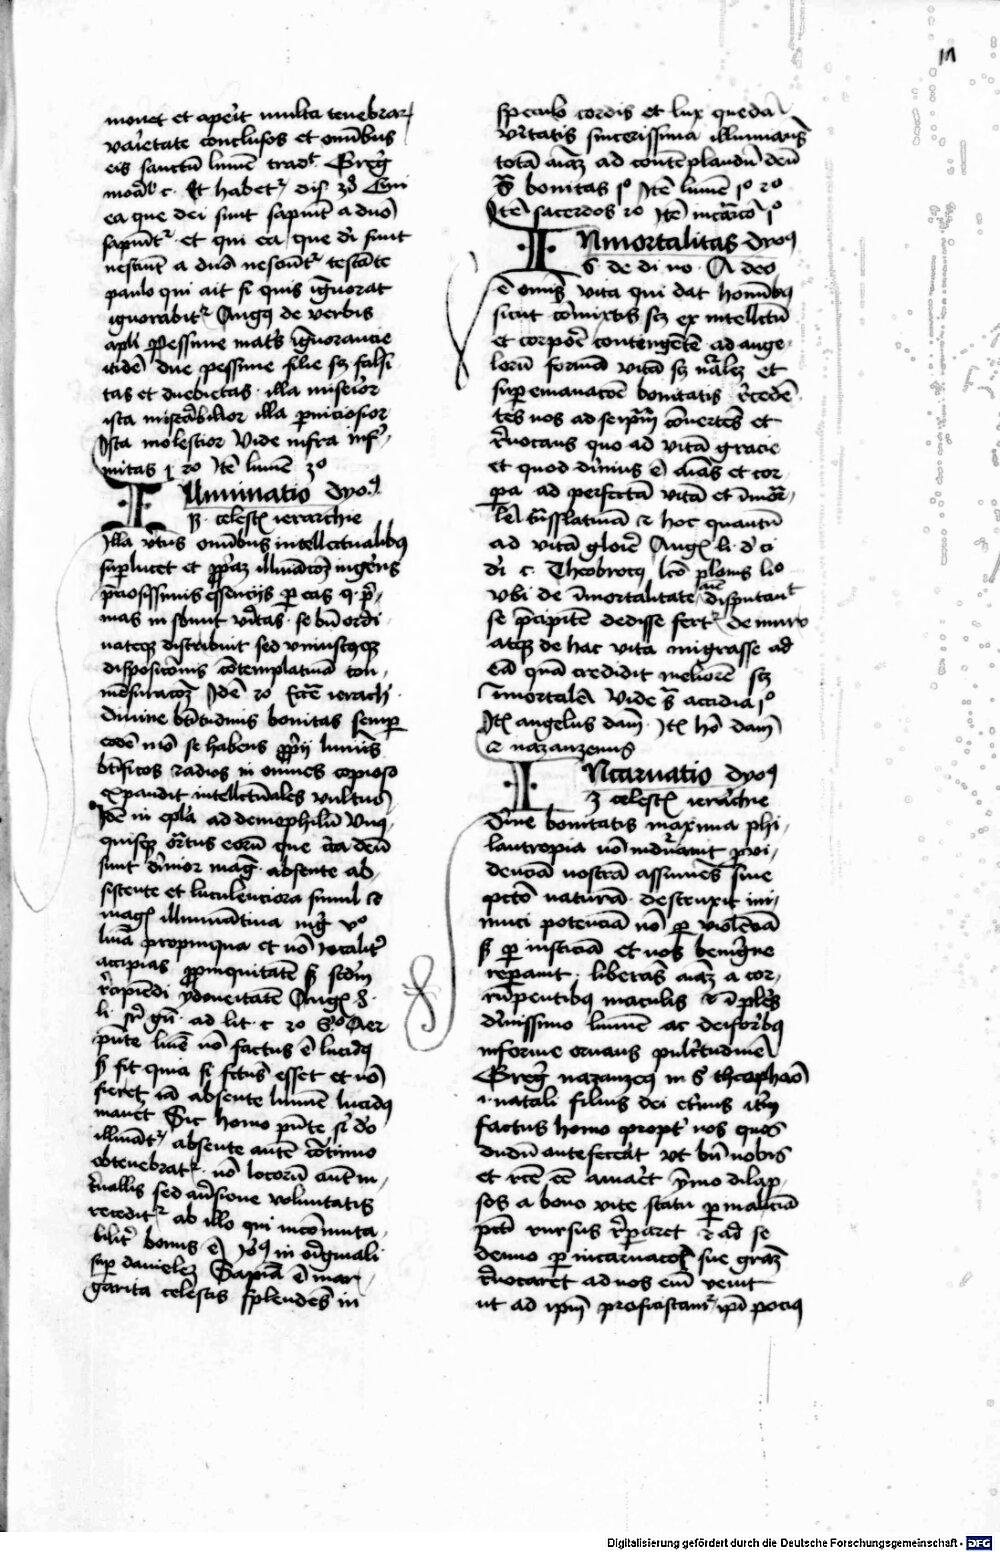 monet et aperit multa tenebrar
varietate conclusos et omibus
eis sanctu lumen tradt. Greg
moral c. Et habet dis
ea que dei sunt sapiunt a deo
sapiunt et qui ea que di sunt
nesciunt a deo nesciunt testante
paulo qui ait si quis ignorat
ignorabit Aug de verbis
apli pessime matris ignorancie
itide due pessime filie sz falsi
tas et dubietas illa miserior
ista miserabilior illa perniciosior
Ista molestior Vide infra infir
mitas 1 20 Ite lume 3o
Illuminatio dyo
celest ierarchie
Illa virtus omibus intellectualibus
superlucet et illuminacoz ingeris
preciosissimis essencijs per eas
veritas se bn ordi
nateqz distribuit sed uniuscuiusqz
disposicionis contemplativa con
mensuracoz Ide 20 Eccte ierarch
Divine btitudinis bonitas semper
eode mo se habens propij luminis
btificos radios in omnes copiose
expandit intellectuales vultus
Ide in epla ad demophilu unus
quisqz ortus eoru que circa deu
sunt divinior mag absente ab
sistente et luculenciora simul et
mag illuminativa mg vo
propinqua et no localiter
accipias propinquitate
recipiendi ydoneitate Aug 8
li. gn ad lit c 20 Aer
pnte lume no factus e lucidus
sz fit quia si fctus esset et no
fieret ia absente lumie lucidus
maneret Sic homo pnte si do
illuminat absente aute continuo
obtenebrat no locoru aut in
tervallis sed aversione voluntatis
recedit ab illo qui incomuta
bilit bonus e Ioh in originali
sup daniele Sapia e mar
garita celestis splendes in
speculo cordis et lux queda
veritatis sincerissima illuminans
tota aiaz ad contemplandu deu
bonitas 1o Ite lume 1o 20
Ite sacerdos 20 Ite incarco 1o
Inmortalitas dyo
S. de di no. A deo
e omis vita qui dat homibus
sicut comixtis sz ex intellectu
et corpore contingente ad ange
loru forma vita sz et
super emanacoe bonitatis recede
tes nos ad seipsum convertes et
revocans quo ad vita gracie
et quod divinius e aias et cor
pa ad perfecta vita et inmor
tale et hoc quantu
ad vita glorie Aug li d ci
di c. Theobrotus lco plonis lio
ubi de inmortalitate aie disputant
se precipite dedisse fert de muro
atqz de hac vita migrasse ad
ea qua credidit meliore sz
inmortale Vide accidia 1o
Ite angelus dam Ite ho dam
et nazanzenus
Incarnatio dyo
3 celest ierarchie
Divine bonitatis maxima phi
lantropia no provi
dencia nostra assumes sine
pcto natura destruxit ini
mici potencia no per violecia
sz per iusticia et nos benigne
reparavit liberas aiaz a cor
rumpentibus maculis et
divinissimo lumie ac deiforibus
informe ornans pulcritudine
Greg nazanzeus in theophao
natali filius dei eternus
factus homo propt nos quos
dudu ante fecerat ut bn nobis
et amaret dilap
sos a bono vite statu per malicia
pcti rursus repararet et ad se
denuo per incarnacoe sue graz
revocaret ad nos eni venit
ut ad ipm proficiscam ipi pocius
Digitalisierung gefördert durch die Deutsche Forschungsgemeinschaft - DFG